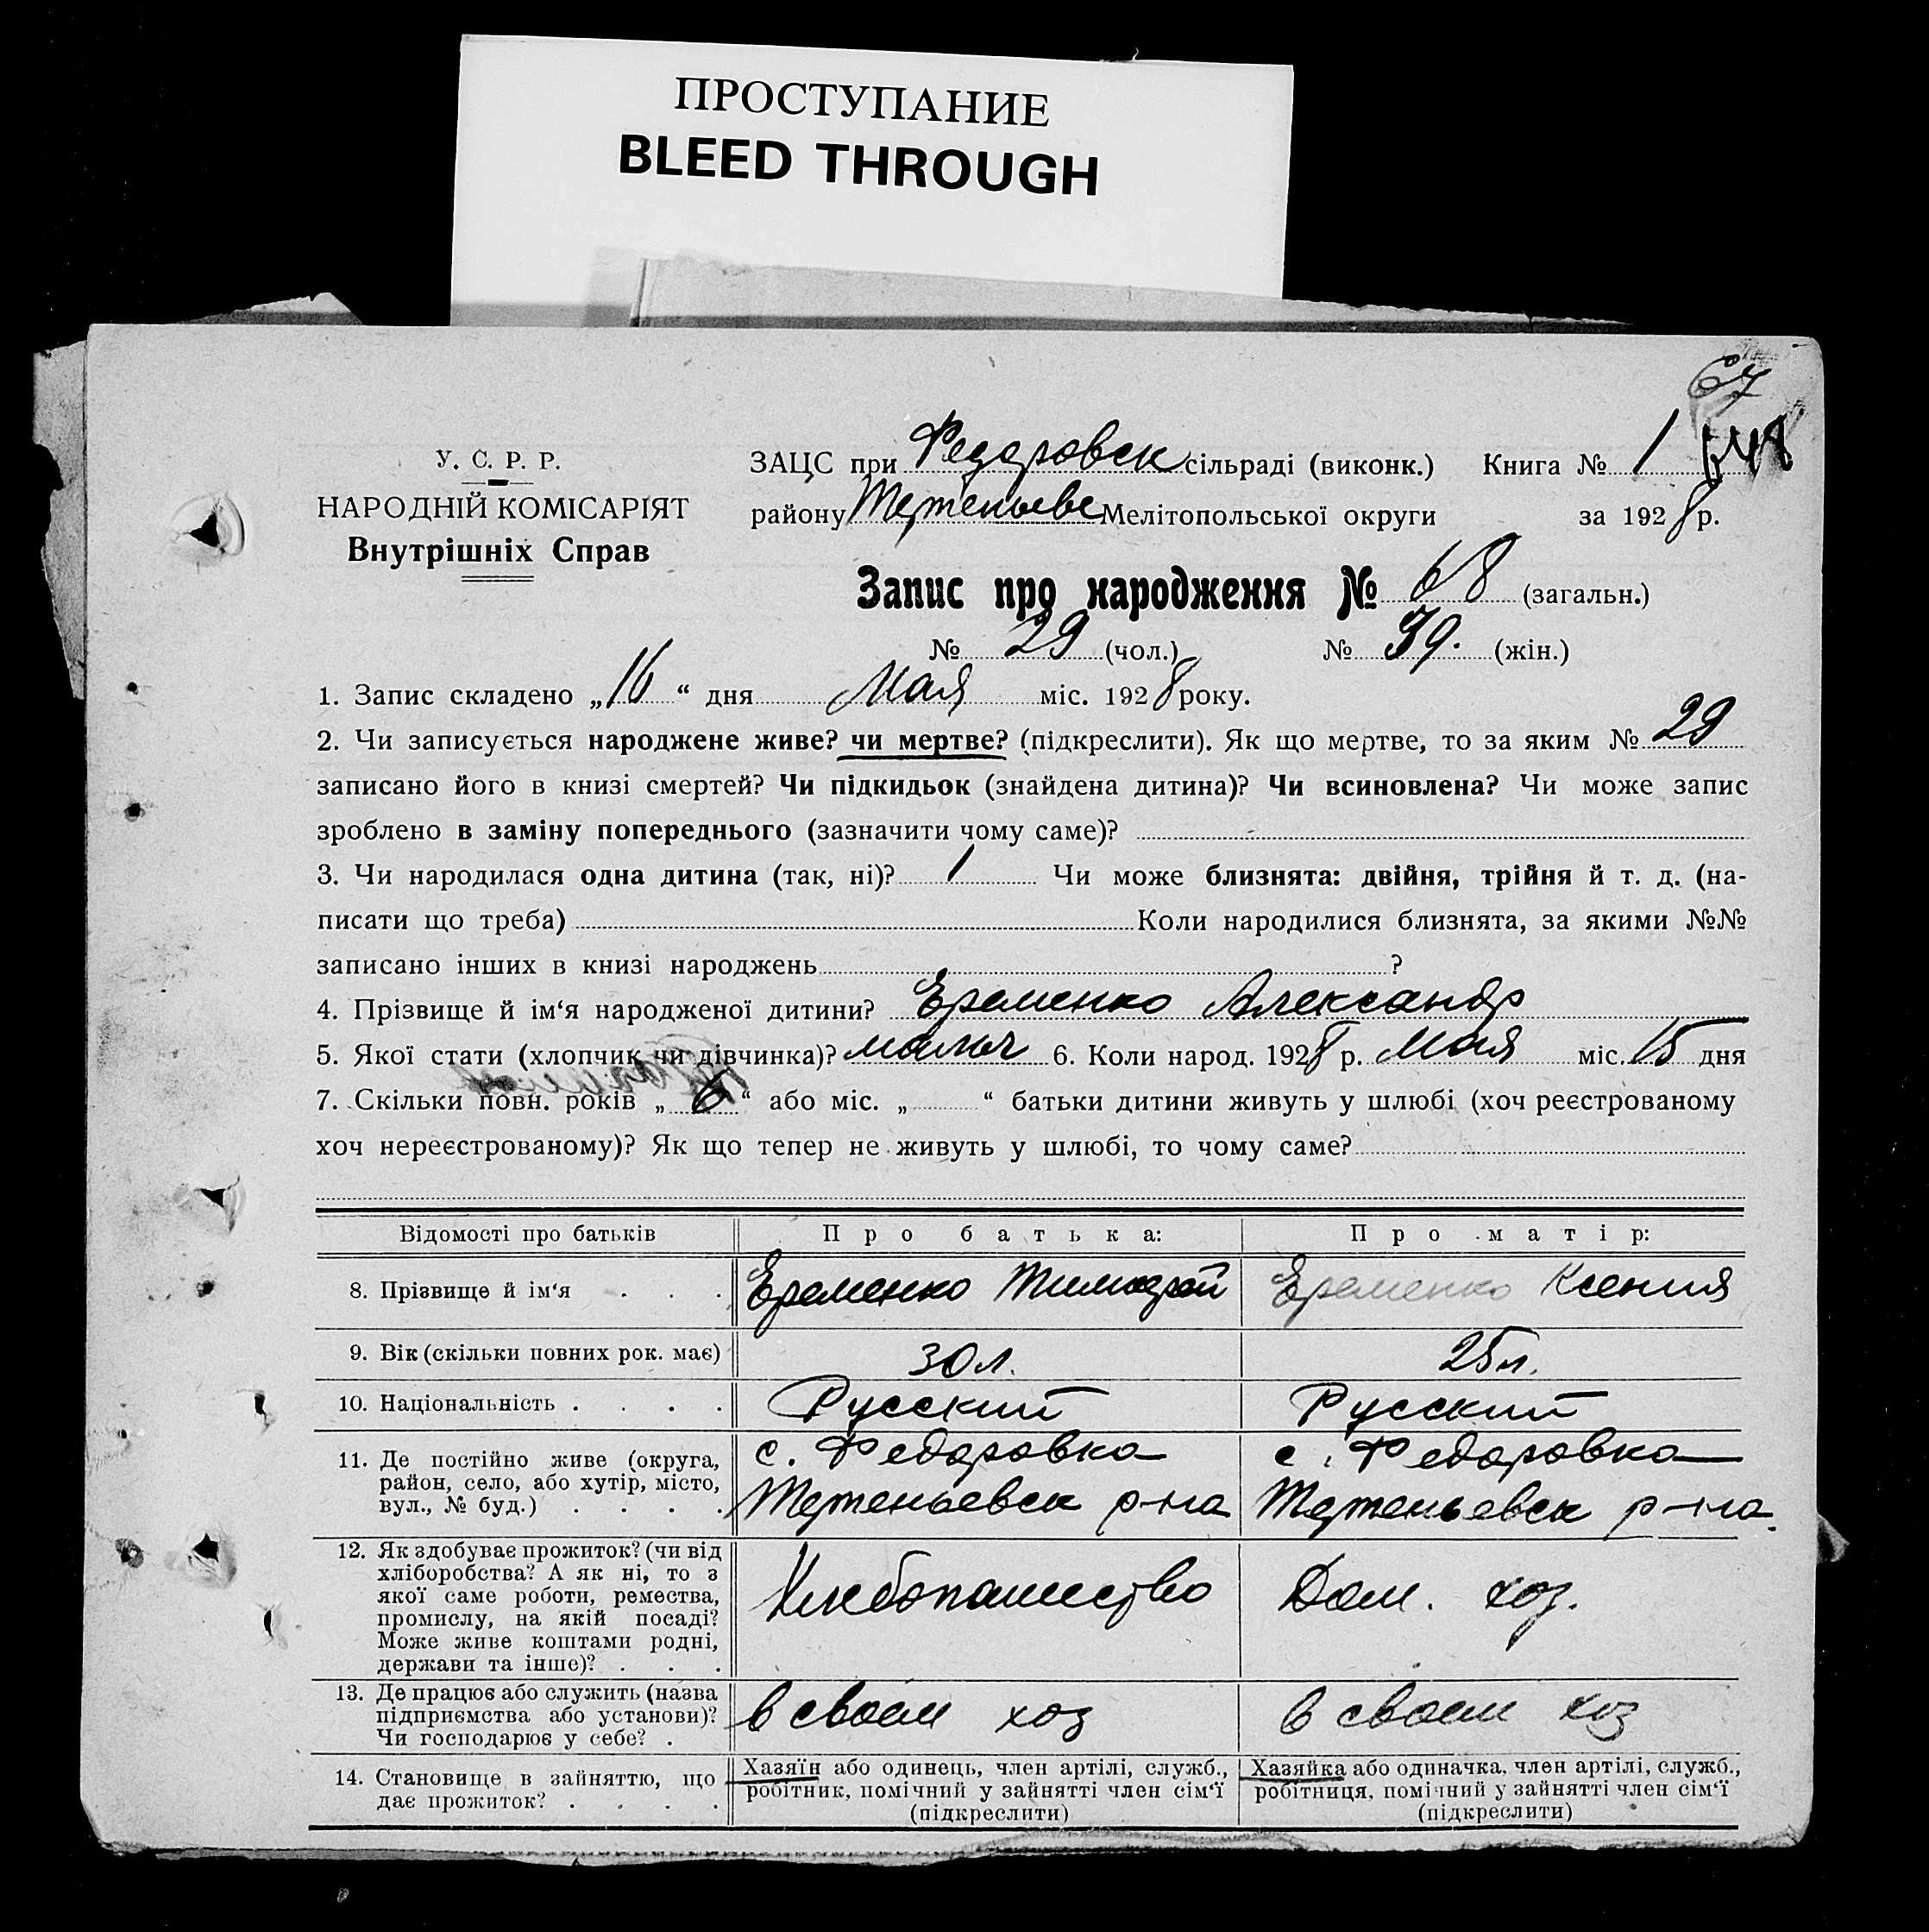 ПРОСТУПАНИЕ
BLEED THROUGH
67
У. С. Р. Р.
НАРОДНІЙ КОМІСАРІЯТ
Внутрішніх Справ
ЗАЦС при Федоровск сільраді (виконк.) Книга № 1
району Мелітопольської округи за 1928 р.
Запис про народження № 68 (загальн.)
№ 29 (чол.) № 39. (жін.)
1. Запис складено „16“ дня Мая міс. 1928 року.
2. Чи записується народжене живе? чи мертве? (підкреслити). Як що мертве, то за яким № 29
записано його в книзі смертей? Чи підкидьок (знайдена дитина)? Чи всиновлена? Чи може запис
зроблено в заміну попереднього (зазначити чому саме)?
3. Чи народилася одна дитина (так, ні)? 1 Чи може близнята: двійня, трійня й т. д. (на-
писати що треба) Коли народилися близнята, за якими №№
записано інших в книзі народжень ?
4. Прізвище й ім‘я народженої дитини? Еременко Александр
5. Якої стати (хлопчик чи дівчинка)? мальч 6. Коли народ. 1928 р. Мая міс. 15 дня
7. Скільки повн. років „6“ або міс. „ “ батьки дитини живуть у шлюбі (хоч реєстрованому
хоч нереєстрованому)? Як що тепер не живуть у шлюбі, то чому саме?
Відомості про батьків Про батька: Про матір:
8. Прізвище й ім‘я . . . Еременко Тимофей Еременко Ксения
9. Вік (скільки повних рок. має) 30 л. 25 л.
10. Національність . . . . Русский Русский
11. Де постійно живе (округа,
район, село, або хутір, місто,
вул., № буд.) . . . .
с. Федоровка
р-на
с. Федоровка
р-на.
12. Як здобуває прожиток? (чи від
хліборобства? А як ні, то з
якої саме роботи, ремества,
промислу, на якій посаді?
Може живе коштами родні,
держави та інше)? . . .
Хлебопашество Дом. хоз.
13. Де працює або служить (назва
підприємства або установи)?
Чи господарює у себе? .
в своем хоз в своем хоз
14. Становище в зайняттю, що
дає прожиток? . . . .
Хазяїн або одинець, член артілі, служб.,
робітник, помічний у зайнятті член сім‘ї
(підкреслити)
Хазяйка або одиначка, член артілі, служб.,
робітниця, помічний у зайнятті член сім‘ї
(підкреслити)